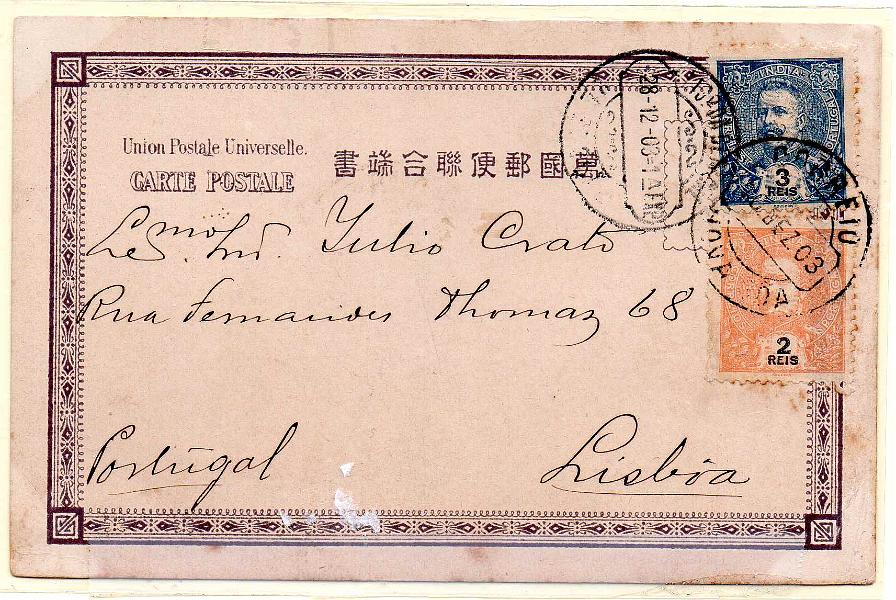 Union Postale Universelle.
CARTE POSTALE
書端合聯便郵國萬
INDIA
3
REIS
2
REIS
28-12-03
CORREIO
DEZ 03
Julio Crato
Rua Fernandes Thomaz 68
Portugal
Lisbôa